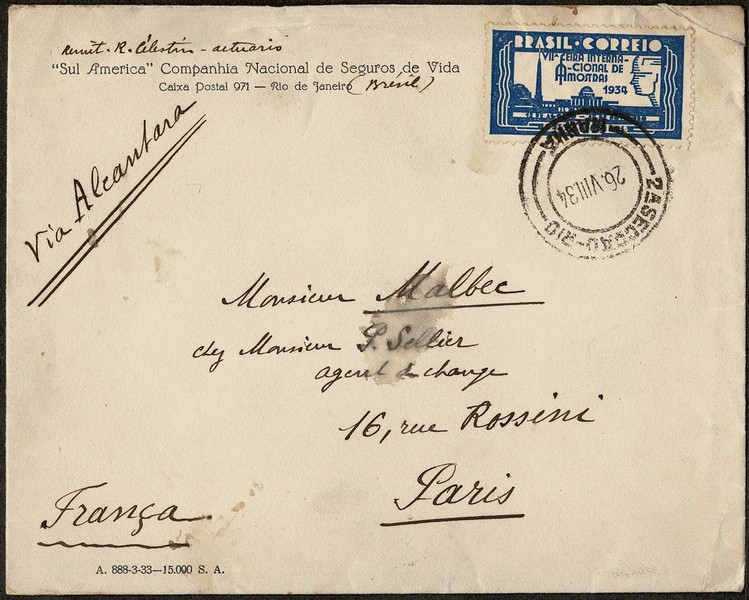 remit. R. Célestin - actuario
"Sul America" Companhia Nacional de Seguros de Vida
Caixa Postal 971 — Rio de Janeiro (Brésil)
BRASIL·CORREIO
VIIª FEIRA INTERNA-
CIONAL DE
AMOSTRAS
1934
26.VIII.34
2ª SECÇÃO-RIO
Via Alcantara
Monsieur Malbec
chez Monsieur P. Sellier
agent de change
16, rue Rossini
Paris
França
A. 888-3-33—15.000 S. A.